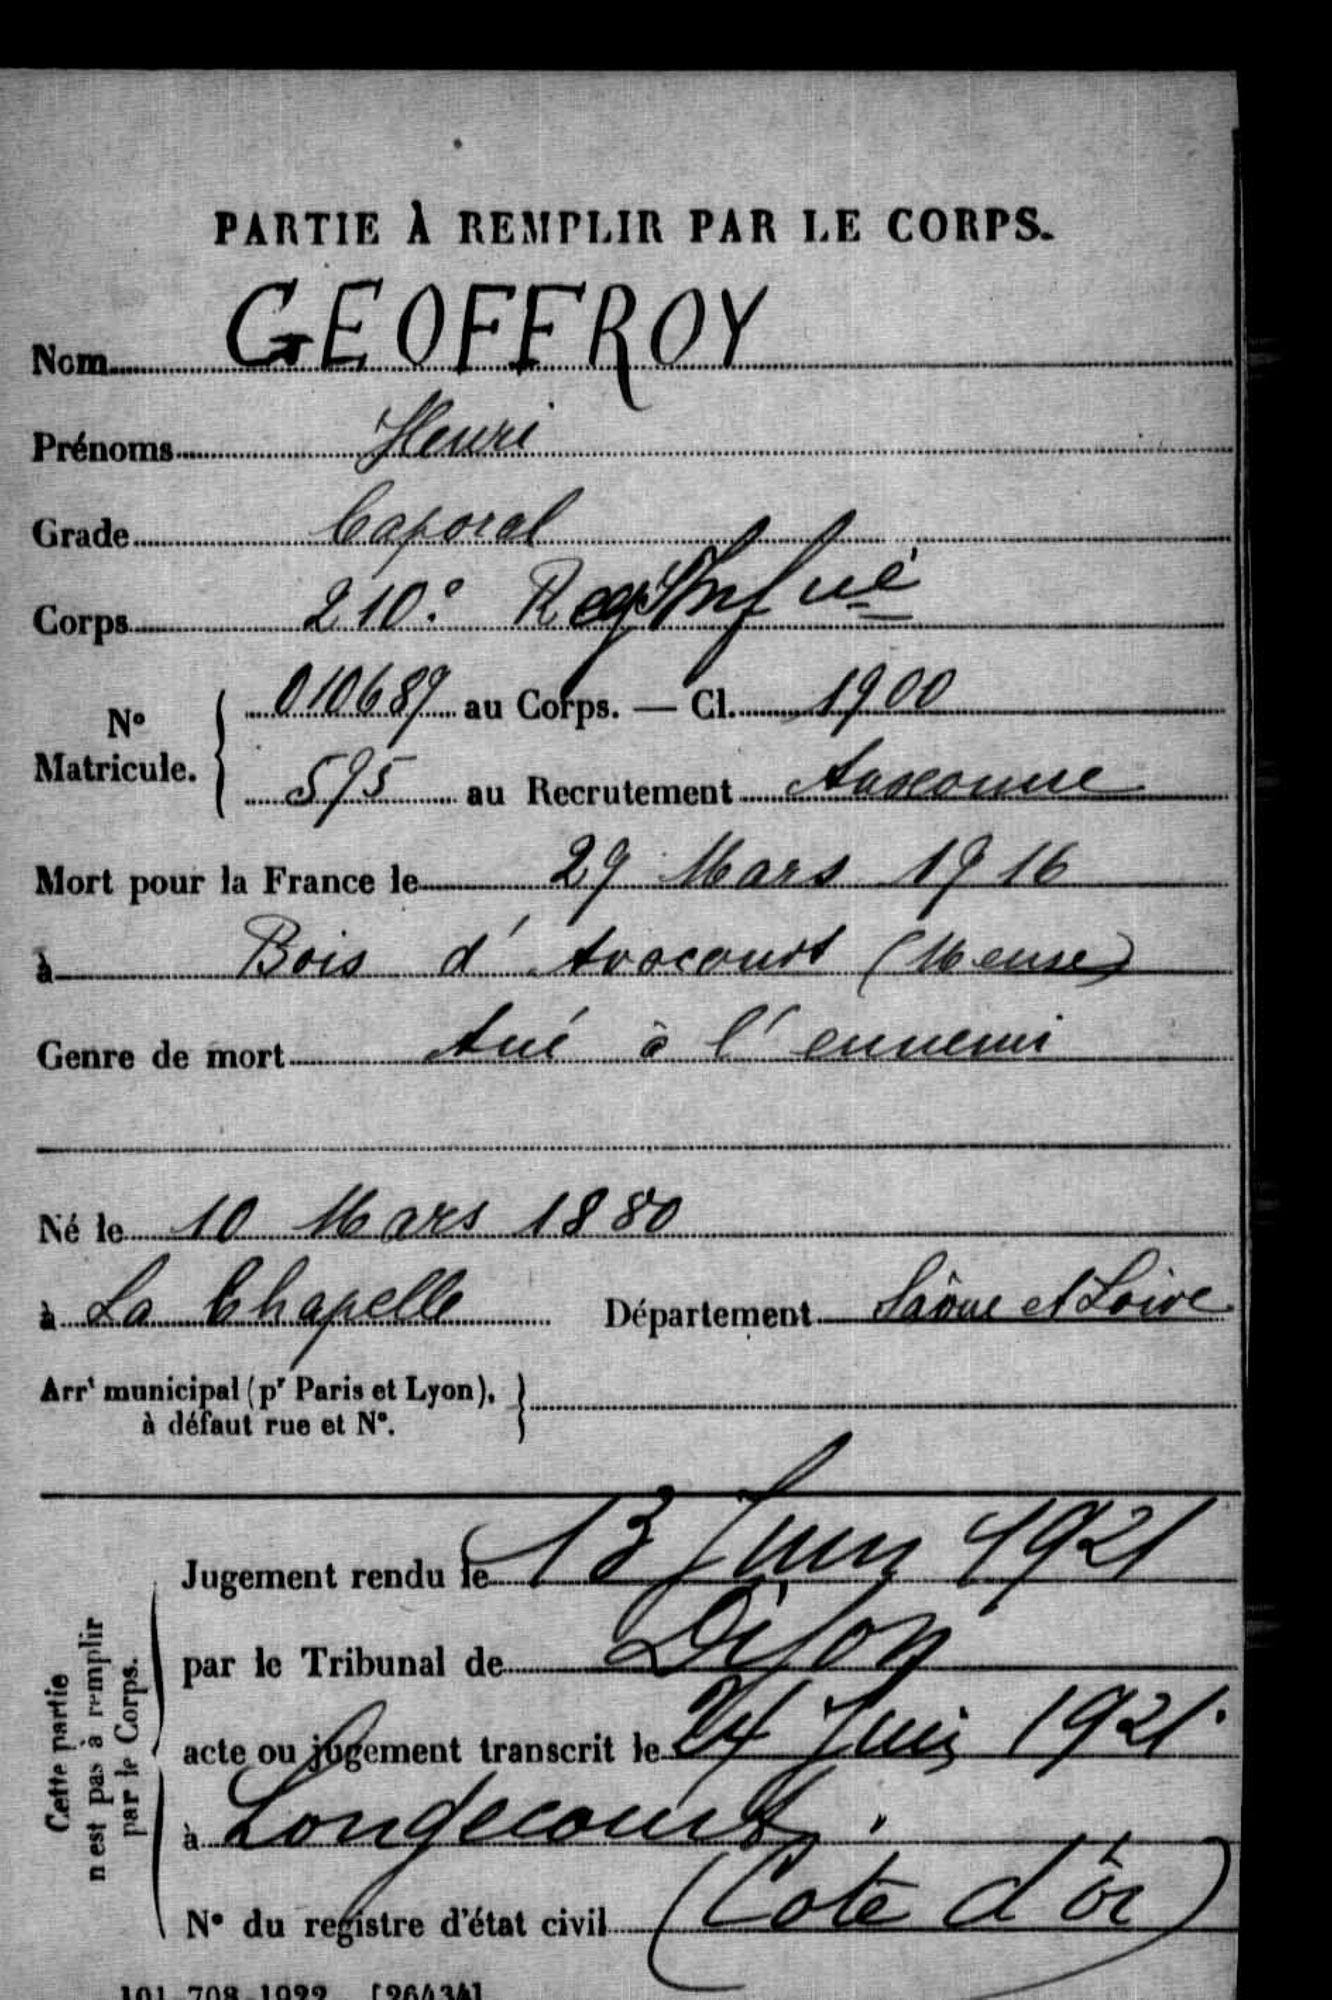 PARTIE À REMPLIR PAR LE CORPS.
Nom GEOFFROY
Prénoms Henri
Grade Caporal
Corps 210e Regt Infrie
N° Matricule. { 010689 au Corps. — Cl. 1900
595 au Recrutement Auxonne
Mort pour la France le 29 Mars 1916
à Bois d'Avocourt (Meuse)
Genre de mort tué à l'ennemi
Né le 10 Mars 1880
à La Chapelle Département Saône et Loire
Arrt municipal (pr Paris et Lyon), }
à défaut rue et N°.
Cette partie
n'est pas à remplir
par le Corps.
Jugement rendu le 13 Juin 1921
par le Tribunal de Dijon
acte ou jugement transcrit le 24 Juin 1921.
à Longecourt.
N° du registre d'état civil (Cote d'Or)
101-708-1922. [26434]